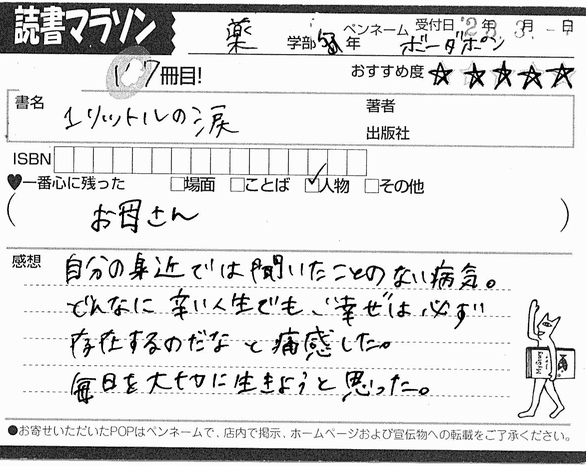 読書マラソン
薬 学部 年 ペンネーム ボーダポン 受付日 '2 年 3. 月 日
7冊目! おすすめ度 ☆☆☆☆☆
書名 1リットルの涙
著者
出版社
ISBN
♥一番心に残った □場面 □ことば ☑人物 □その他
( お母さん )
感想 自分の身近では聞いたことのない病気。
どんなに辛い人生でも、幸せは必ず
存在するのだな と痛感した。
毎日を大切に生きようと思った。
●お寄せいただいたPOPはペンネームで、店内で掲示、ホームページおよび宣伝物への転載をご了承ください。